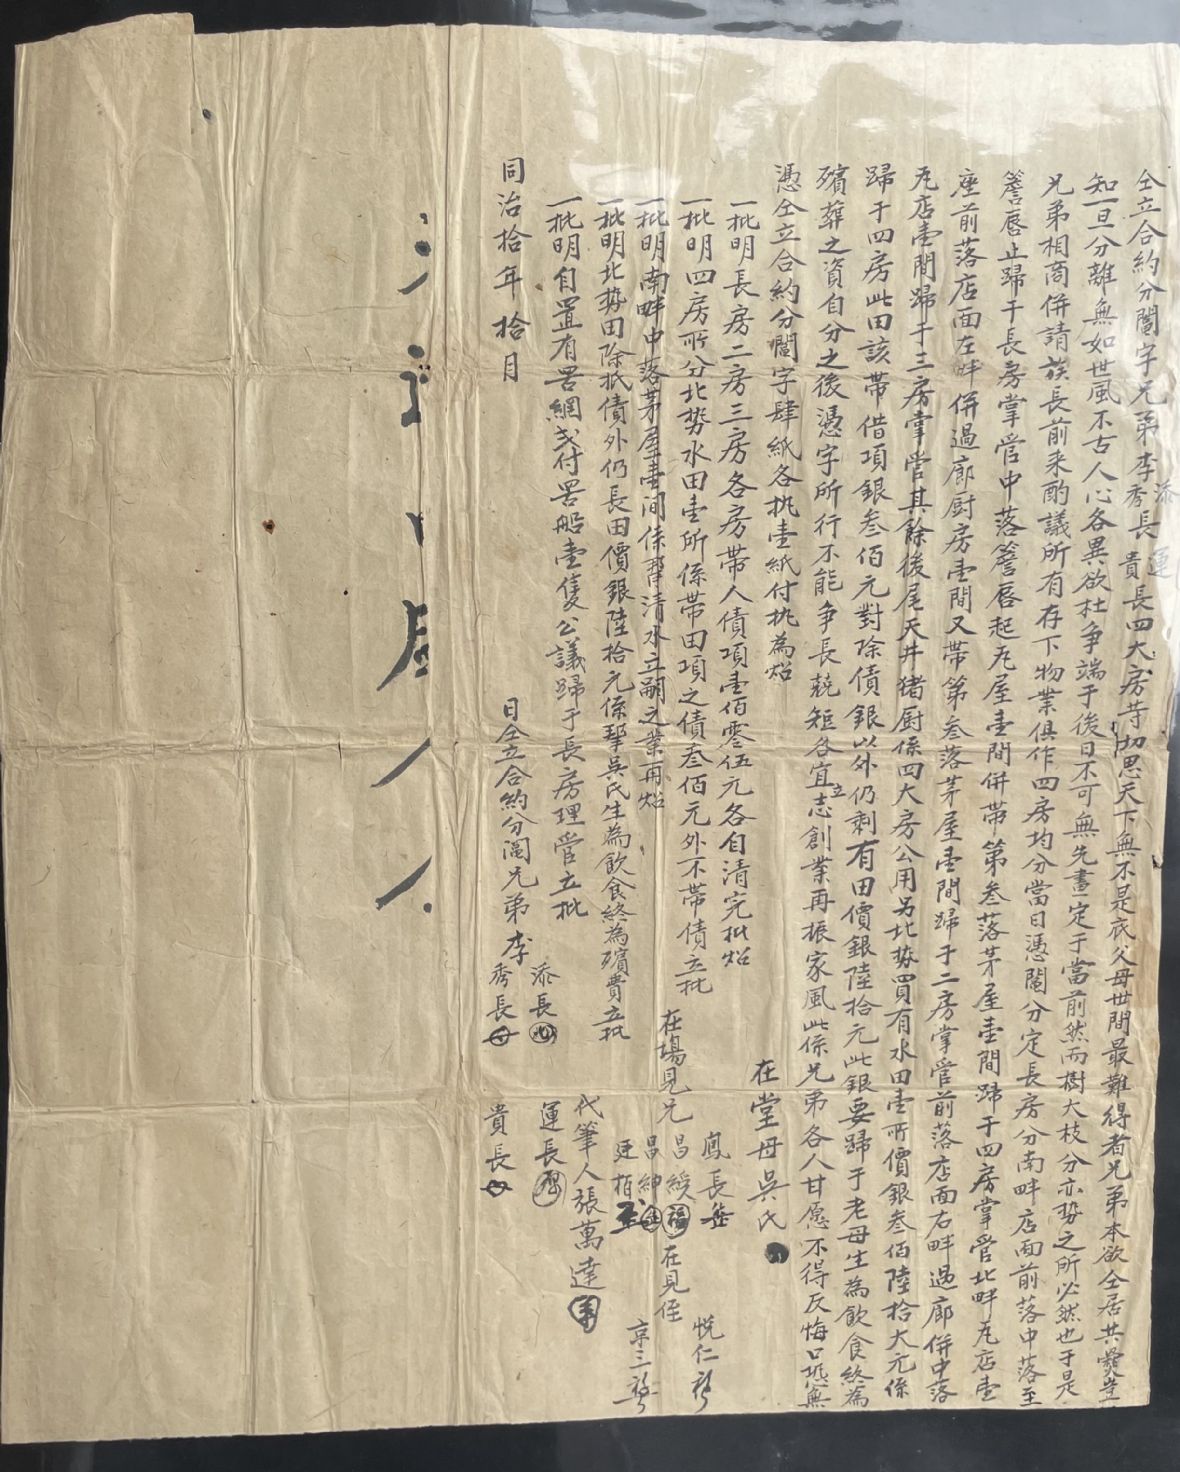 仝立合約分鬮字兄弟李添秀長運貴長四大房等切思天下無不是底父母世間最難得者兄弟本欲仝居共爨豈
知一旦分離無如世風不古人心各異欲杜争端于後日不可無先畫定于當前然而樹大枝分亦势之所必然也于是
兄弟相商併請族長前来酌議所有存下物業俱作四房均分當日憑鬮分定長房分南畔店面前落中落至
簷唇止歸于長房掌管中落簷唇起瓦屋壹間併帶第叁落茅屋壹間歸于四房掌管北畔瓦店壹
座前落店面左畔併過廊厨房壹間又帶第叁落茅屋壹間歸于二房掌管前落店面右畔過廊併中落
瓦店壹間歸于三房掌管其餘後尾天井猪厨係四大房公用另北势買有水田壹所價銀叁佰陸拾大元係
歸于四房此田該帶借項銀叁佰元對除債銀以外仍剩有田價銀陸拾元此銀要歸于老母生為飲食終為
殯葬之資自分之後憑字所行不能争長競短各宜立志創業再振家風此係兄弟各人甘愿不得反悔口恐無
憑仝立合約分鬮字肆紙各执壹紙付执為炤
一批明長房二房三房各房帶人債項壹佰零伍元各自清完批炤
一批明四房所分北势水田壹所係帶田項之債叁佰元外不帶債立批
一批明南畔中落茅屋壹间係帮清水立嗣之業再炤
一批明北势田除抵債外仍長田價銀陸拾元係拏吳氏生為飲食終為殯費立批
一批明自置有罟網弍付罟船壹隻公議歸于長房理管立批
在堂母吳氏
在場見兄
鳳長
昌綬 福
昌紳
廷栢
在見侄
悦仁
京三
代筆人張萬達
同治拾年拾月 日仝立合約分鬮兄弟李
添長
秀長
運長
貴長